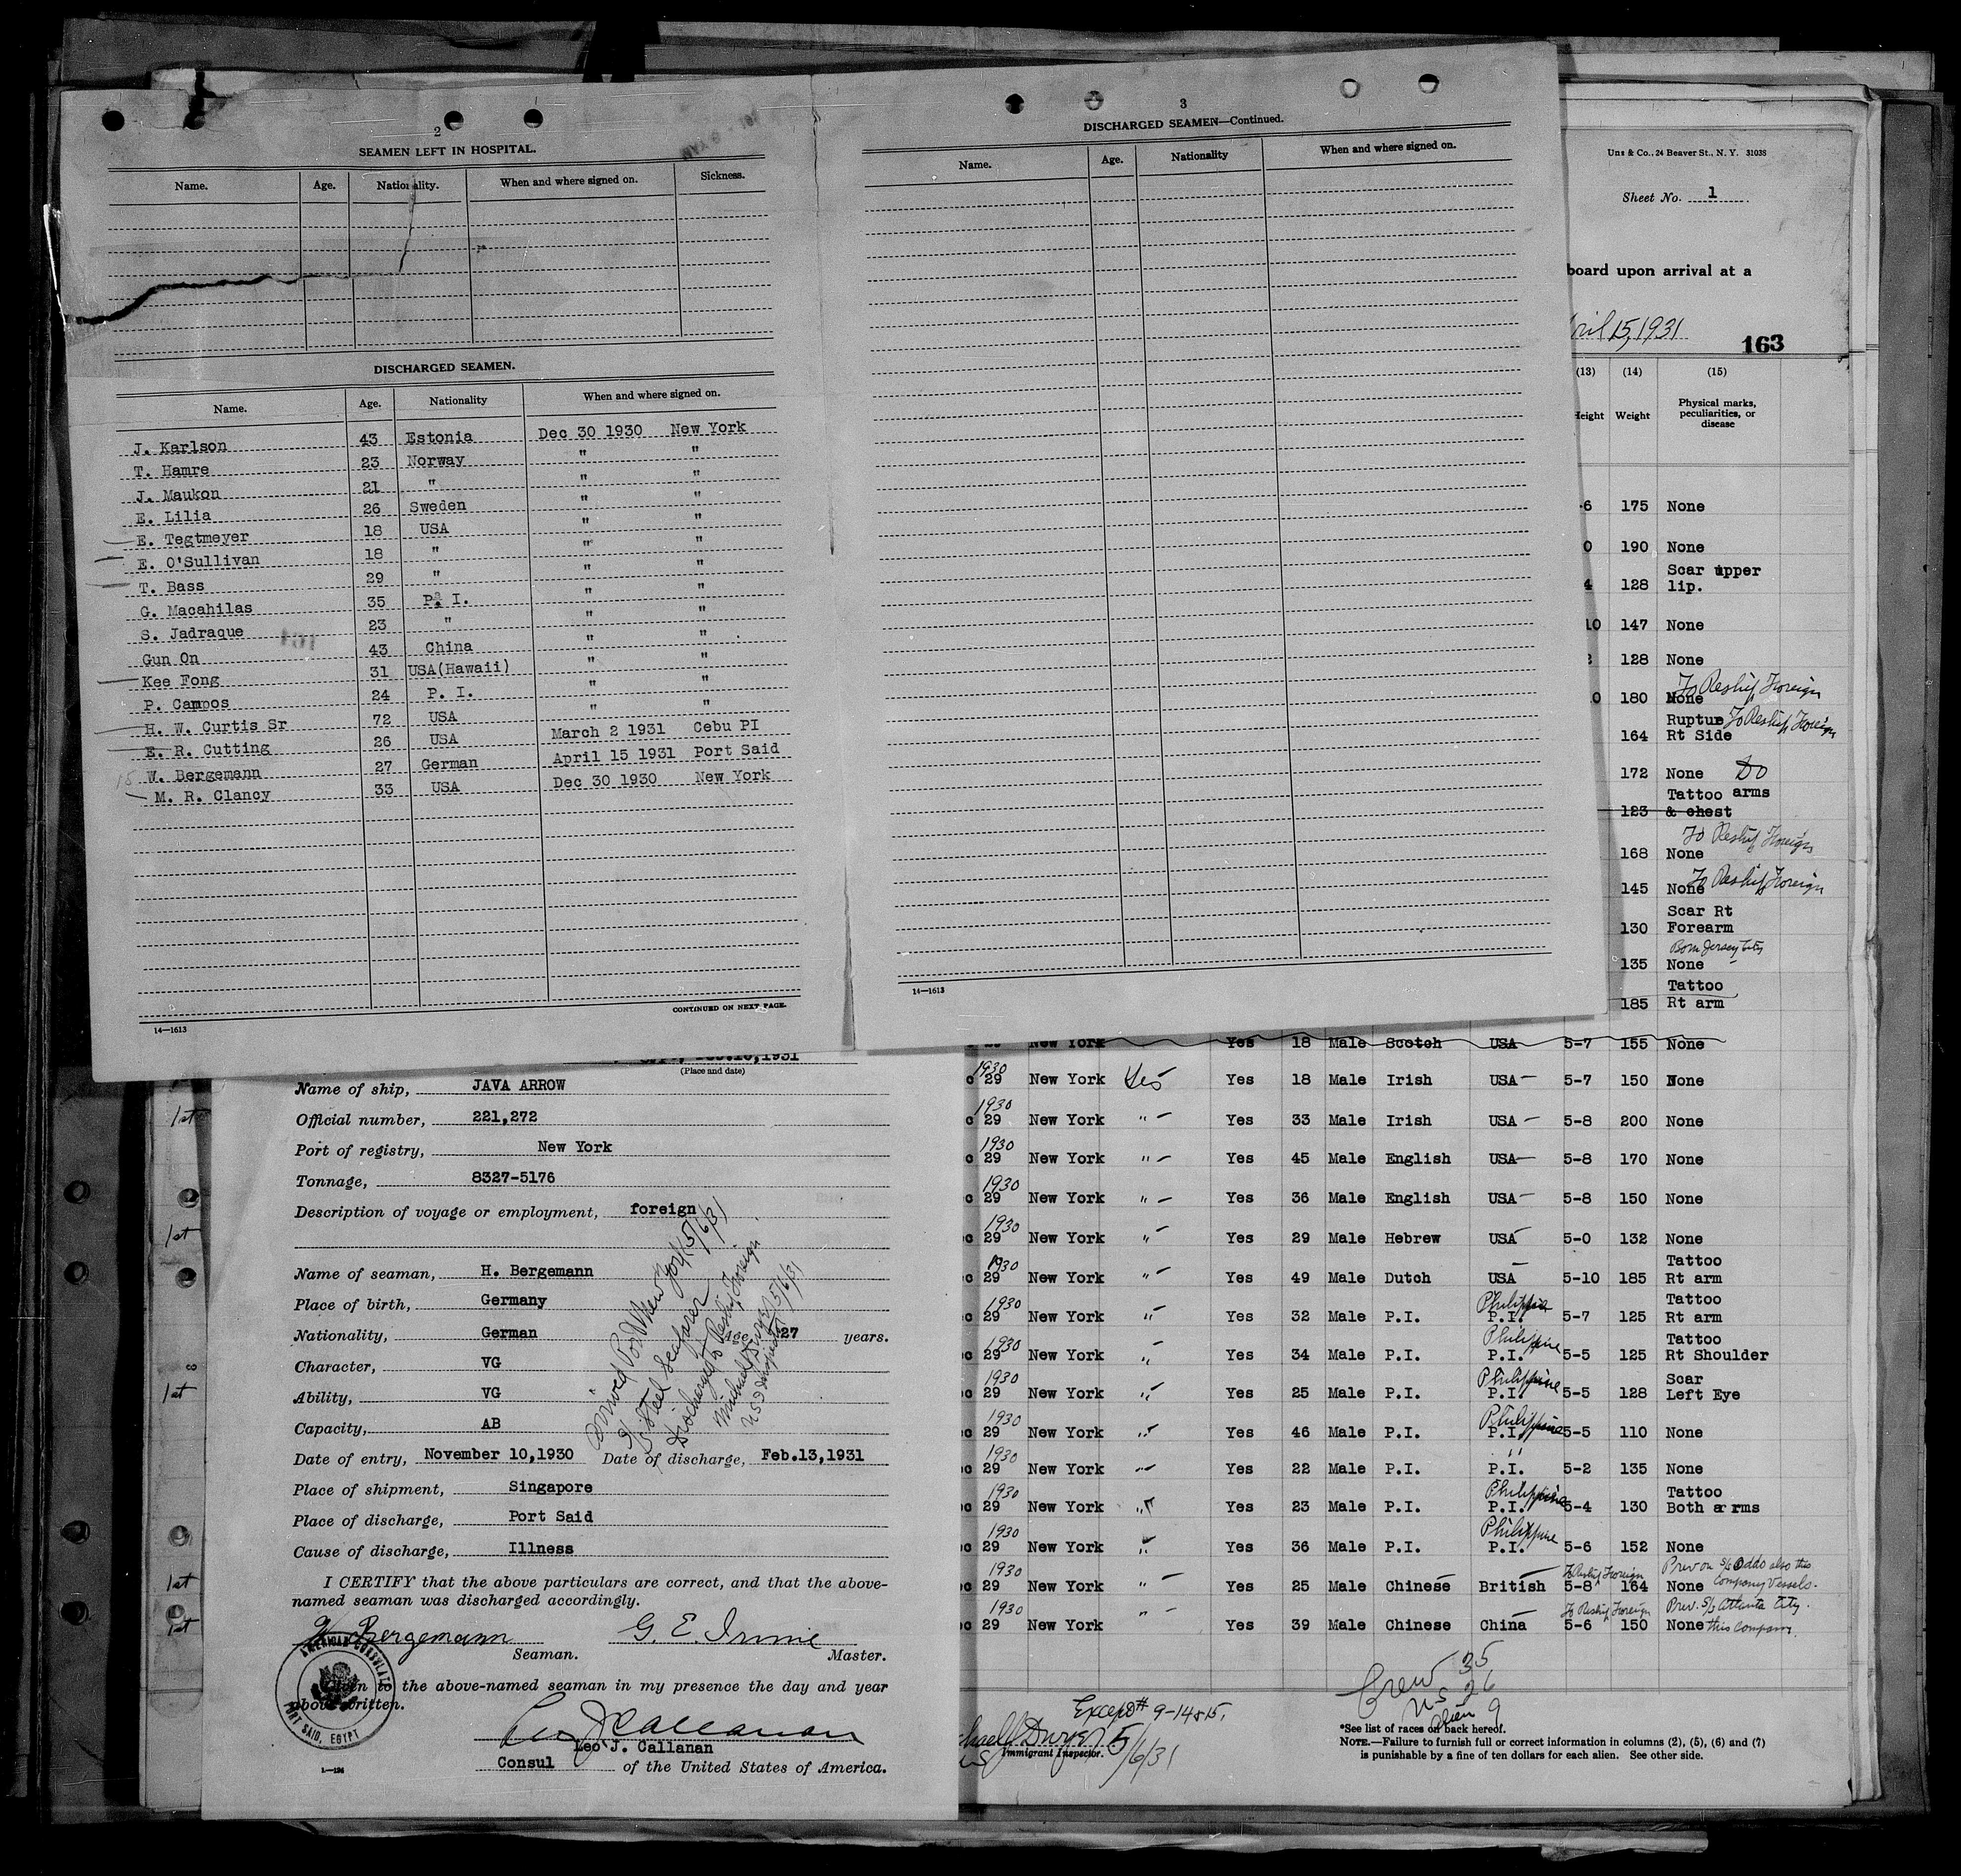 2
SEAMEN LEFT IN HOSPITAL.
Name. Age. Nationality. When and where signed on. Sickness.
DISCHARGED SEAMEN.
Name. Age. Nationality When and where signed on.
J. Karlson 43 Estonia Dec 30 1930 New York
T. Hamre 23 Norway " "
J. Maukon 21 " " "
E. Lilia 26 Sweden " "
E. Tegtmeyer 18 USA " "
E. O'Sullivan 18 " " "
T. Bass 29 " " "
G. Macahilas 35 P. I. " "
S. Jadraque 23 " " "
Gun On 43 China " "
Kee Fong 31 USA(Hawaii) " "
P. Campos 24 P. I. " "
H. W. Curtis Sr 72 USA " "
E. R. Cutting 26 USA March 2 1931 Cebu PI
W. Bergemann 27 German April 15 1931 Port Said
M. R. Clancy 33 USA Dec 30 1930 New York
CONTINUED ON NEXT PAGE.
14—1613
3
DISCHARGED SEAMEN—Continued.
Name. Age. Nationality When and where signed on.
14—1613
Uns & Co., 24 Beaver St., N. Y. 3103S
Sheet No. 1
board upon arrival at a
ril 15, 1931 163
(13) (14) (15)
Height Weight Physical marks, peculiarities, or disease
6 175 None
0 190 None
Scar upper
4 128 lip.
10 147 None
128 None
To Reship Foreign
0 180 None
Rupture To Reship Foreign
164 Rt Side
172 None Do
Tattoo arms
123 & chest
To Reship Foreign
168 None
145 None To Reship Foreign
Scar Rt
130 Forearm
Born Jersey City
135 None
Tattoo
185 Rt arm
New York Yes 18 Male Scotch USA 5-7 155 None
1930
c 29 New York Yes Yes 18 Male Irish USA 5-7 150 None
1930
c 29 New York " Yes 33 Male Irish USA 5-8 200 None
1930
c 29 New York " Yes 45 Male English USA 5-8 170 None
1930
c 29 New York " Yes 36 Male English USA 5-8 150 None
1930
c 29 New York " Yes 29 Male Hebrew USA 5-0 132 None
1930 Tattoo
c 29 New York " Yes 49 Male Dutch USA 5-10 185 Rt arm
1930 Philippine Tattoo
c 29 New York " Yes 32 Male P.I. P.I. 5-7 125 Rt arm
1930 Philippine Tattoo
c 29 New York " Yes 34 Male P.I. P.I. 5-5 125 Rt Shoulder
1930 Philippine Scar
c 29 New York " Yes 25 Male P.I. P.I. 5-5 128 Left Eye
1930 Philippine
c 29 New York " Yes 46 Male P.I. P.I. 5-5 110 None
1930 "
c 29 New York " Yes 22 Male P.I. P.I. 5-2 135 None
1930 Philippine Tattoo
c 29 New York " Yes 23 Male P.I. P.I. 5-4 130 Both arms
1930 Philippine
c 29 New York " Yes 36 Male P.I. P.I. 5-6 152 None
1930 To Reship Foreign Prev on S/S Oddo also this
c 29 New York " Yes 25 Male Chinese British 5-8 164 None Company Vessels.
1930 To Reship Foreign Prev. S/S Atlanta City.
c 29 New York " Yes 39 Male Chinese China 5-6 150 None this Company.
Crew 35
US 26
Alien 9
Except # 9-14&15.
Immigrant Inspector. 5/6/31
*See list of races on back hereof.
NOTE.—Failure to furnish full or correct information in columns (2), (5), (6) and (7)
is punishable by a fine of ten dollars for each alien. See other side.
1st
1st
1st
1st
1st
1931
(Place and date)
Name of ship, JAVA ARROW
Official number, 221,272
Port of registry, New York
Tonnage, 8327-5176
Description of voyage or employment, foreign
Name of seaman, H. Bergemann
Place of birth, Germany
Nationality, German Age 27 years.
Character, VG
Ability, VG
Capacity, AB
Date of entry, November 10,1930 Date of discharge, Feb.13,1931
Place of shipment, Singapore
Place of discharge, Port Said
Cause of discharge, Illness
Arrived Port New York 5/6/31
S/S Steel Seafarer
Discharged to Reship Foreign
Michael J Dwyer 5/6/31
US Inspector
I CERTIFY that the above particulars are correct, and that the above-
named seaman was discharged accordingly.
Bergemann G. E. Irvine
Seaman. Master.
Given to the above-named seaman in my presence the day and year
above written.
AMERICAN CONSULATE
PORT SAID, EGYPT
Leo J. Callanan
Leo J. Callanan
Consul of the United States of America.